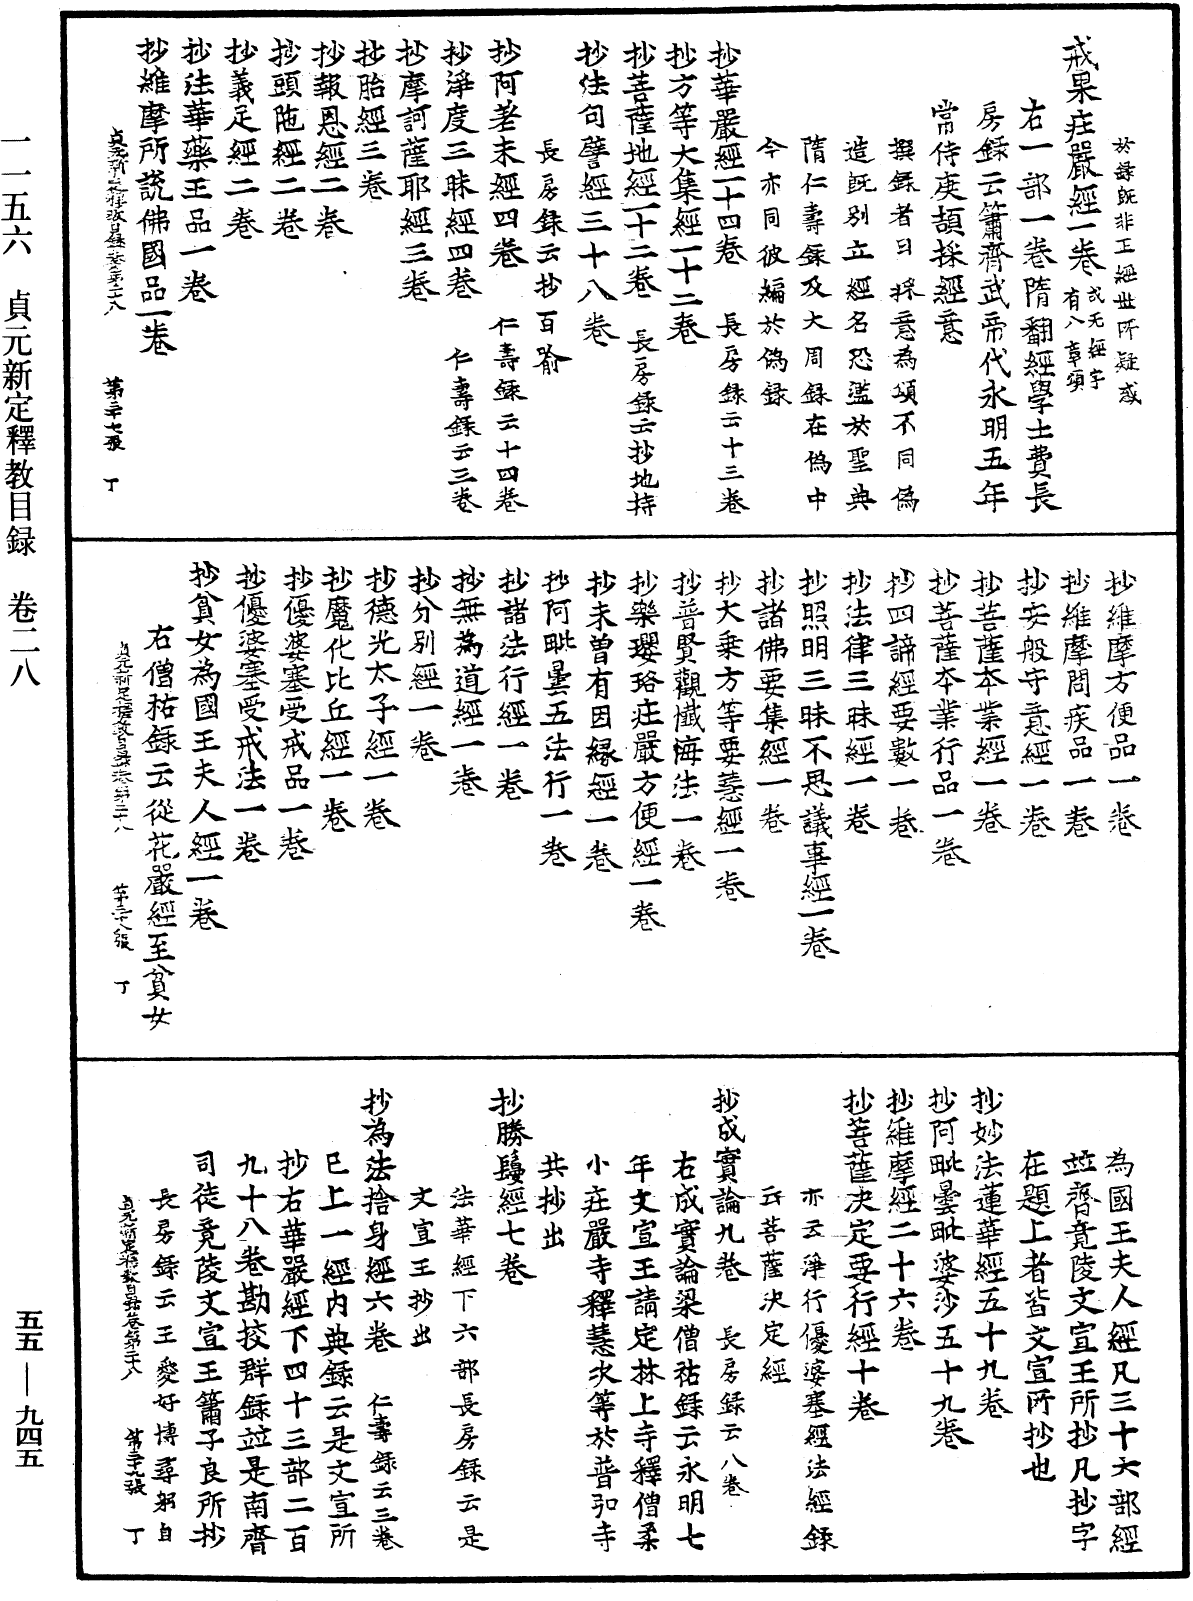 一一五六　貞元新定釋教目録　卷二八
五五—九四五
於録旣非正經世所疑惑
戒果莊嚴經一卷 或无經字 有八章頌
右一部一卷隋翻經學士費長
房録云簫齊武帝代永明五年
常侍庾頡採經意
撰録者曰採意為頌不同偽
造旣别立經名恐濫於聖典
隋仁壽録及大周録在偽中
今亦同彼編於偽録
抄華嚴經一十四卷 長房録云十三卷
抄方等大集經一十二卷
抄菩薩地經一十二卷 長房録云抄地持
抄法句譬經三十八卷
長房録云抄百喻
抄阿差末經四卷 仁壽録云十四卷
抄淨度三昧經四卷 仁壽録云三卷
抄摩訶薩耶經三卷
抄胎經三卷
抄報恩經二卷
抄頭陁經二卷
抄義足經二卷
抄法華藥王品一卷
抄維摩所説佛國品一卷
貞元新定釋教目録卷第二十八 第三十七張 丁
抄維摩方便品一卷
抄維摩問疾品一卷
抄安般守意經一卷
抄菩薩本業經一卷
抄菩薩本業行品一卷
抄四諦經要數一卷
抄法律三昧經一卷
抄照明三昧不思議事經一卷
抄諸佛要集經一卷
抄大乗方等要慧經一卷
抄普賢觀懺悔法一卷
抄樂瓔珞莊嚴方便經一卷
抄未曽有因縁經一卷
抄阿毗曇五法行一卷
抄諸法行經一卷
抄無為道經一卷
抄分别經一卷
抄德光太子經一卷
抄魔化比丘經一卷
抄優婆塞受戒品一卷
抄優婆塞受戒法一卷
抄貧女為國王夫人經一卷
右僧祐録云從花嚴經至貧女
貞元新定釋教目録卷第二十八 第三十八張 丁
為國王夫人經凡三十六部經
竝齊竟陵文宣王所抄凡抄字
在題上者皆文宣所抄也
抄妙法蓮華經五十九卷
抄阿毗曇毗婆沙五十九卷
抄維摩經二十六卷
抄菩薩决定要行經十卷
亦云淨行優婆塞經法經録
云菩薩决定經
抄成實論九卷 長房録云八卷
右成實論梁僧祐録云永明七
年文宣王請定林上寺釋僧柔
小莊嚴寺釋慧次等於普弘寺
共抄出
抄勝鬘經七卷
法華經下六部長房録云是
文宣王抄出
抄為法捨身經六卷 仁壽録云三卷
巳上一經内典録云是文宣所
抄右華嚴經下四十三部二百
九十八卷勘挍群録竝是南齊
司徒竟陵文宣王簫子良所抄
長房録云王愛好博尋躬自
貞元新定釋教目録卷第二十八 第三十九張 丁